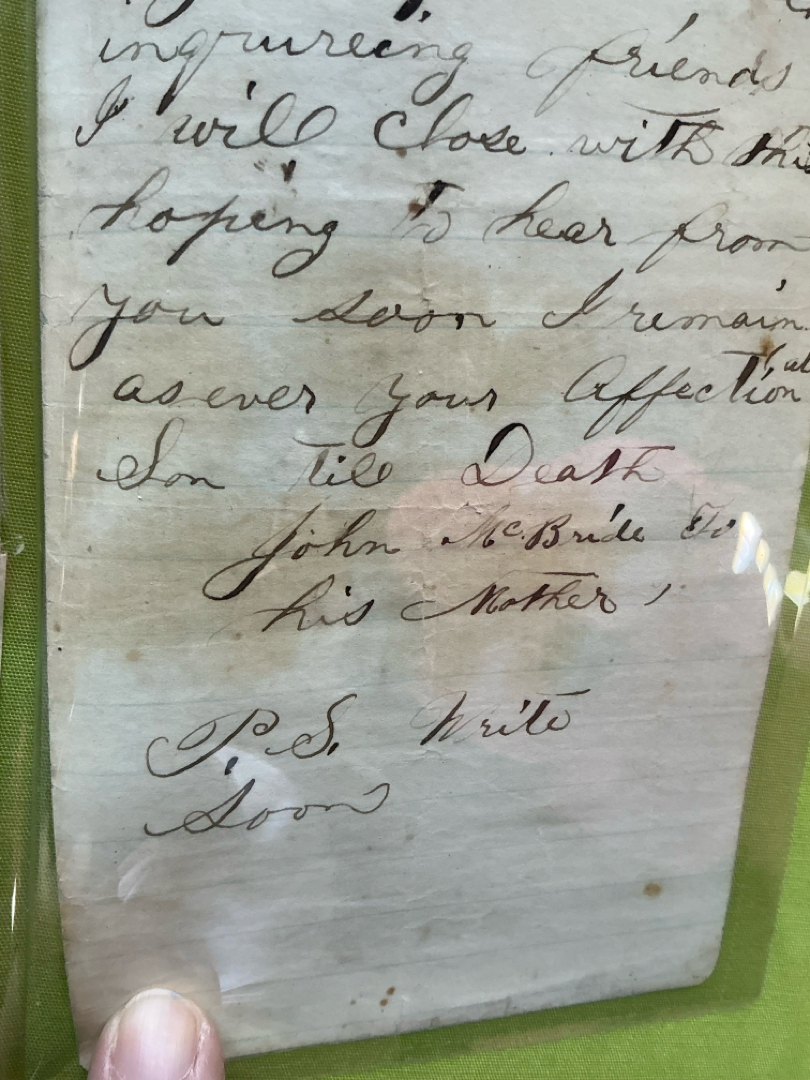 inqureing friends
I will close with this
hoping to hear from
you soon I remain
as ever your Affectionat
Son till Death
John McBride To
his Mother,
P.S. Write
Soon